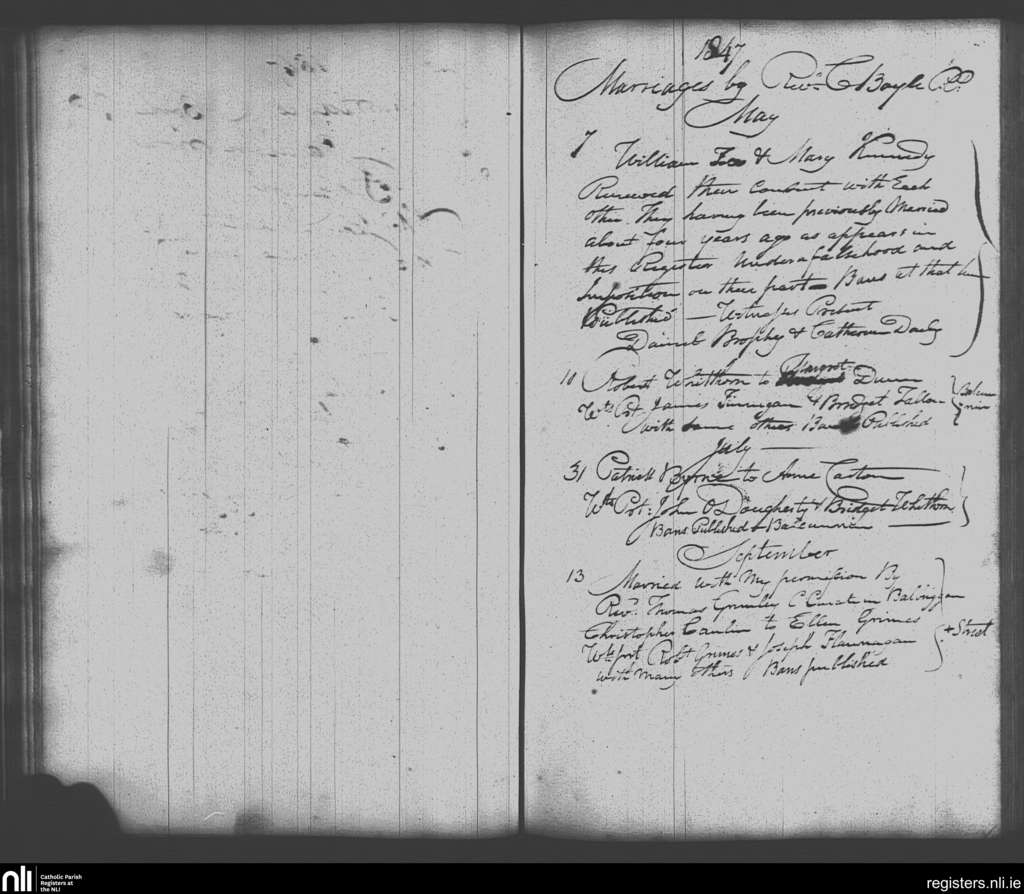 1847
Marriages by Revd. C Boyle P.P.
May
7 William & Mary Kennedy
Renewed their Consent with Each
other. They having been previously Married
about four years ago as appears in
this Register Under a falsehood and
Imposition on their part - Bans at that
Published — Witnesses Present
Daniel Brophy & Catherine Darby
10 Robert Whitthorn to Margret Dunn
Wts. Prt. James Finnegan & Bridget Fallon
with some others Bans Published
July —
31 Patrick Byrne to Anne Caston
Wts Prt: John O'Dougherty & Bridget Whitthorn
Bans Published
September
13 Married with My permission By
Revd. Thomas Grimley C Curate in
Christopher to Ellen Grimes
Wts prt Robt Grimes & Joseph Flannagan
+ Street
with many others Bans published
nli Catholic Parish
Registers at
the NLI
registers.nli.ie